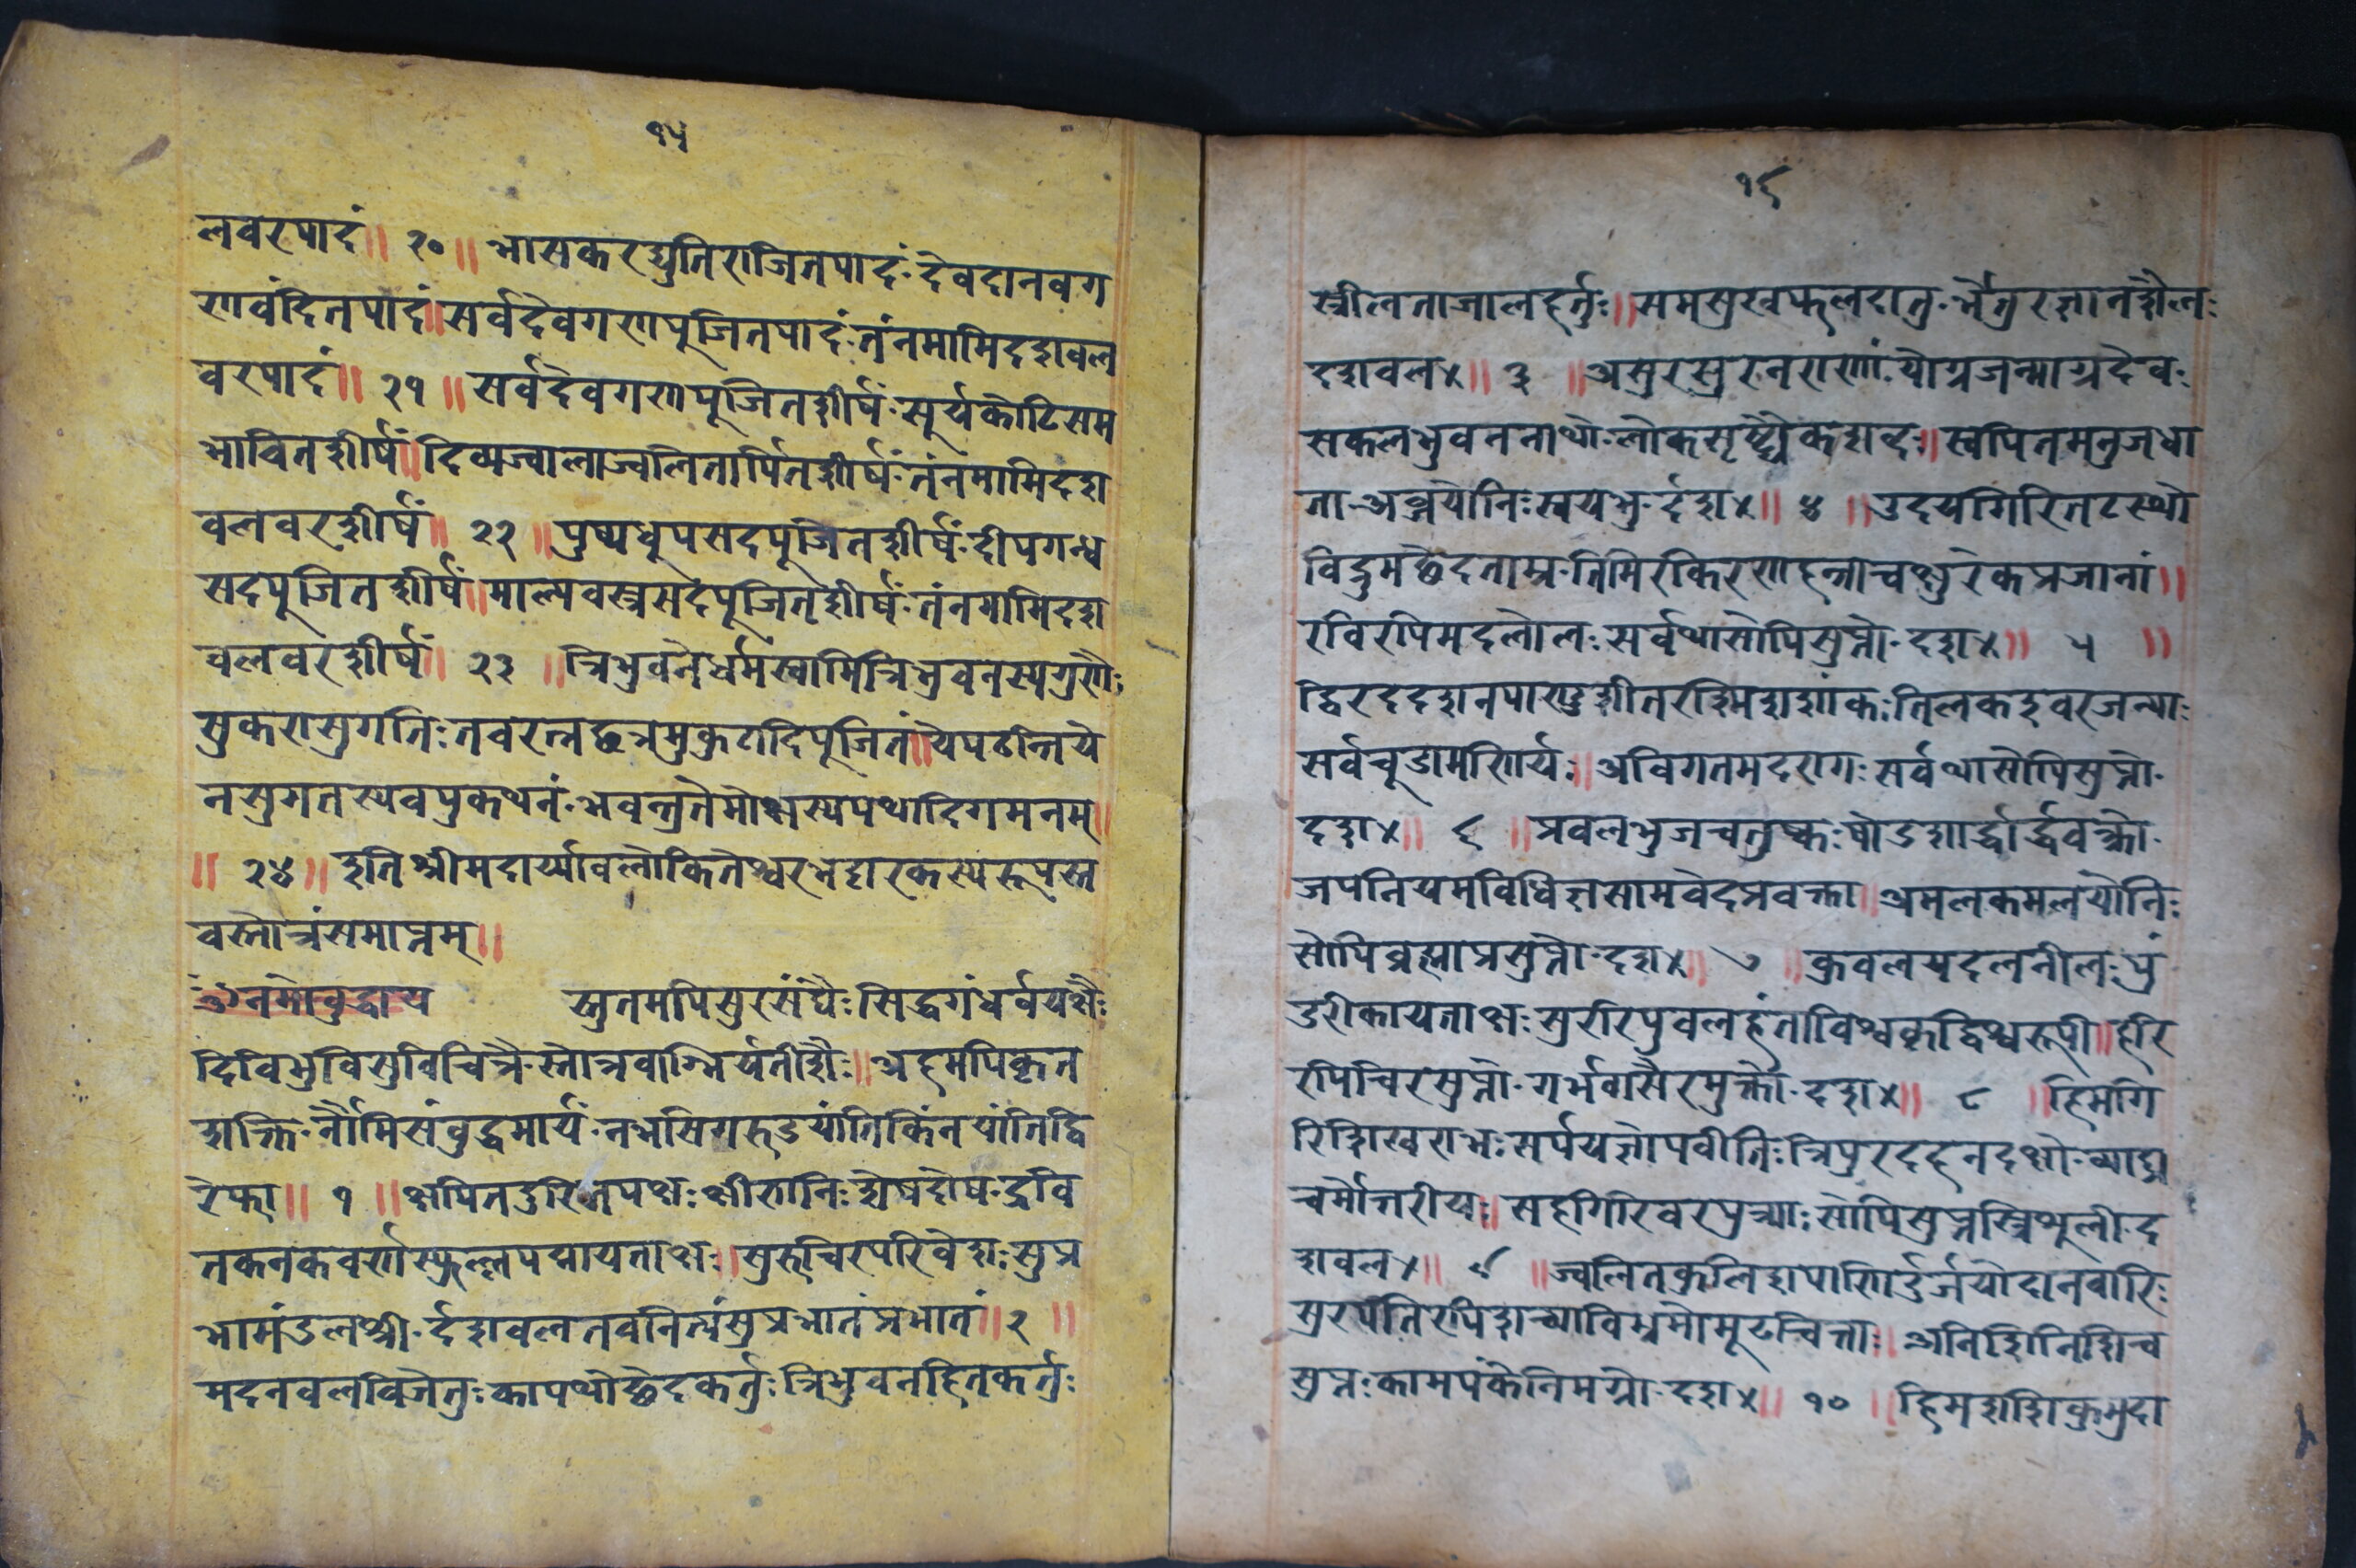 १५
लवरपादं॥ २० ॥ भासकरद्युतिराजितपादं·देवदानवग
णवंदितपादं॥सर्वदेवगणपूजितपादं·तंनमामिदशवल
वरपादं॥ २१ ॥ सर्वदेवगणपूजितशीर्षं·सूर्यकोटिसम
भावितशीर्षं॥दिव्यज्वालाज्वलितार्पितशीर्षं·तंनमामिदश
वलवरशीर्षं॥ २२ ॥ पुष्पधुपसदपूजितशीर्षं·दीपगन्ध
सदपूजितशीर्षं॥माल्यवस्त्रसदपूजितशीर्षं·तंनमामिदश
वलवरशीर्षं॥ २३ ॥ त्रिभुवनेधर्मस्वामित्रिभुवनस्यगुरुणे
सुकरासुगतिः तवरत्नछत्रमुकुटादिपूजितं॥येपठन्तिये
नसुगतस्यवपुकथनं·भवन्तुतेमोक्षस्यपथादिगमनम्॥
॥ २४ ॥ इतिश्रीमदार्य्यावलोकितेश्वरभट्टारकस्यरूपस्त
वस्तोत्रंसमाप्तम्॥
ॐनमोवुद्धाय स्तुतमपिसुरसंघैः सिद्धगंधर्वयक्षैः
दिविभुविसुविचित्रैः स्तोत्रवाग्भिर्यतीशैः॥अहमपिकृत
शक्ति·र्नौमिसंवुद्धमार्यं·नभसिगरुडयातेकिंनयांतिद्वि
रेफा॥ १ ॥ क्षपितदुरितपक्षः क्षीणनिःशेषदोष·द्रवि
तकनकवर्णस्फुल्लपद्मायताक्षः॥सुरुचिरपरिवेशः सुप्र
भामंडलश्री·र्दशवलतवनित्यंसुप्रभातंप्रभातं॥ २ ॥
मदनवलविजेतुः कापथोछेदकर्तुः त्रिभुवनहितकर्तुः
१६
स्त्रीलताजालहर्तुः॥समसुखफलदातु·र्भेतुरज्ञानशैलः
दशवल४॥ ३ ॥ असुरसुरनराणां·योग्रजन्माग्रदेव·
सकलभुवननाथो·लोकसृष्ट्यैकशव्दः॥स्वपितमनुजधा
ता·अव्जयोनिः स्वयंभु·र्दश४॥ ४ ॥ उदयगिरितटस्थो
विद्रुमछेदताम्र·तिमिरकिरणहन्ताचक्षुरेकप्रजानां॥
रविरपिमदलोलः सर्वथासोपिसुप्तो·दश४॥ ५ ॥
द्विरददशनपाण्डुशीतरश्मिशशांकः तिलकइवरजन्याः
सर्वचूडामणिर्य॥अविगतमदरागः सर्वथासोपिसुप्तो·
दश४॥ ६ ॥ प्रवलभुजचतुष्कः षोडशार्द्धार्द्धवक्त्रो·
जपनियमविधिज्ञसामवेदप्रवक्ता॥अमलकमलयोनिः
सोपिव्रह्माप्रसुप्तो·दश४॥ ७ ॥ कुवलयदलनीलः पुं
डरीकायताक्षः सुररिपुवलहंताविश्वकृद्विश्वरूपी॥हरि
रपिचिरसुप्तो·गर्भवासैरमुक्तो·दश४॥ ८ ॥ हिमगि
रिशिखराभः सर्पयज्ञोपवीतिः त्रिपुरदहनदक्षो·व्याघ्र
चर्मोत्तरीयः॥सहगिरिवरपुत्र्याः सोपिसुप्तस्त्रिशुली·द
शवल४॥ ९ ॥ ज्वलितकुलिशपाणिर्दुर्जयोदानवारिः
सुरपतिरपिशच्याविभ्रमोमूढचित्ताः॥अनिशिनिशिच
सुप्तः कामपंकेनिमग्नो·दश४॥ १० ॥ हिमशशिकुमुदा